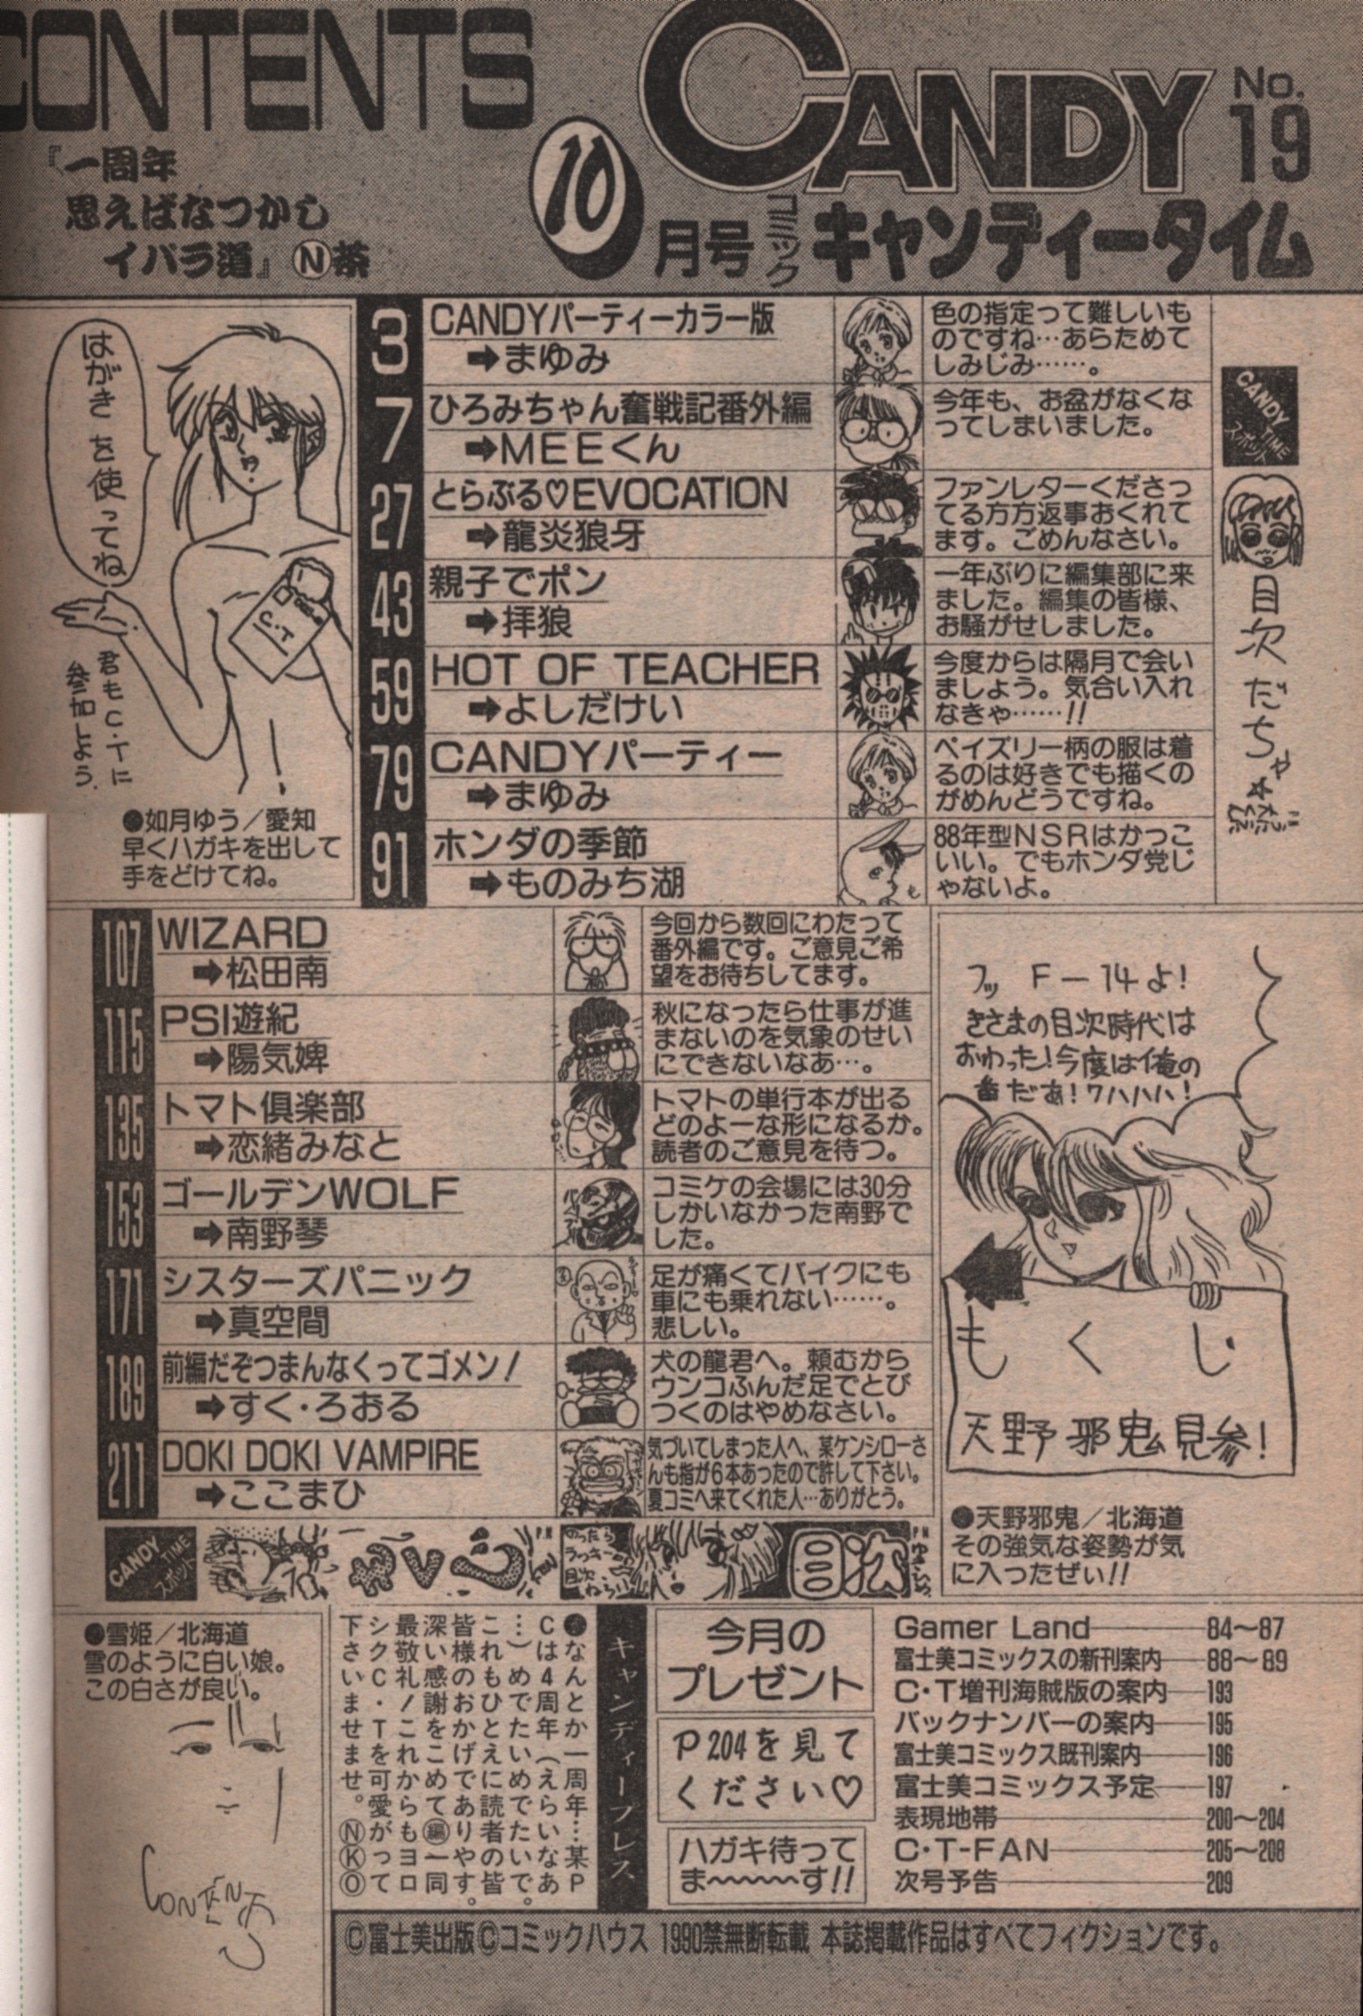 CONTENTS
『一周年
思えばなつかし
イバラ道』Ⓝ茶
10
月号
CANDY
No.
19
コミック
キャンディータイム
はがきを使ってね
C・T
君もC・Tに
参加しよう.
●如月ゆう／愛知
早くハガキを出して
手をどけてね。
3
CANDYパーティーカラー版
➡まゆみ
色の指定って難しいも
のですね…あらためて
しみじみ……。
7
ひろみちゃん奮戦記番外編
➡MEEくん
今年も、お盆がなくな
ってしまいました。
27
とらぶる♡EVOCATION
➡龍炎狼牙
ファンレターくださっ
てる方方返事おくれて
ます。ごめんなさい。
43
親子でポン
➡拝狼
一年ぶりに編集部に来
ました。編集の皆様、
お騒がせしました。
59
HOT OF TEACHER
➡よしだけい
今度からは隔月で会い
ましょう。気合い入れ
なきゃ……!!
79
CANDYパーティー
➡まゆみ
ペイズリー柄の服は着
るのは好きでも描くの
がめんどうですね。
91
ホンダの季節
➡ものみち湖
88年型NSRはかっこ
いい。でもホンダ党じ
ゃないよ。
CANDY
TIME
スポット
目次だちゃ☆
107
WIZARD
➡松田南
今回から数回にわたって
番外編です。ご意見ご希
望をお待ちしてます。
115
PSI遊紀
➡陽気婢
秋になったら仕事が進
まないのを気象のせい
にできないなあ…。
135
トマト倶楽部
➡恋緒みなと
トマトの単行本が出る
どのよーな形になるか。
読者のご意見を待つ。
153
ゴールデンWOLF
➡南野琴
コミケの会場には30分
しかいなかった南野で
した。
171
シスターズパニック
➡真空間
足が痛くてバイクにも
車にも乗れない……。
悲しい。
189
前編だぞつまんなくってゴメン！
➡すく・ろおる
犬の龍君へ。頼むから
ウンコふんだ足でとび
つくのはやめなさい。
211
DOKI DOKI VAMPIRE
➡ここまひ
気づいてしまった人へ、某ケンシローさ
んも指が6本あったので許して下さい。
夏コミへ来てくれた人…ありがとう。
フッ F-14よ！
きさまの目次時代は
おわった！今度は俺の
番だあ！ワハハハ！
もくじ
天野邪鬼見参！
●天野邪鬼／北海道
その強気な姿勢が気
に入ったぜい!!
CANDY
TIME
スポット
のったら
ラッキー
目次
目次
●雪姫／北海道
雪のように白い娘。
この白さが良い。
CONTENTS
キャンディープレス
●なんとか一周年…某P
Cは4周年（えらいなあ
…）めでたいめでたいで。
これもひとえに読者の皆
皆様のおかげでありやす。
深い感謝をこめて㊩一同
最敬礼！これからもヨロ
シクC・Tを可愛がって
下さいませませ。ⓃⓀⓄ
今月の
プレゼント
P204を見て
ください♡
ハガキ待って
ま〜〜〜〜す!!
Gamer Land——84〜87
富士美コミックスの新刊案内——88〜89
C・T増刊海賊版の案内——193
バックナンバーの案内——195
富士美コミックス既刊案内——196
富士美コミックス予定——197
表現地帯——200〜204
C・T-FAN——205〜208
次号予告——209
©富士美出版©コミックハウス 1990禁無断転載 本誌掲載作品はすべてフィクションです。